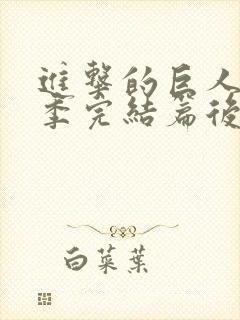 進擊的巨人
季完結篇後
白菜葉